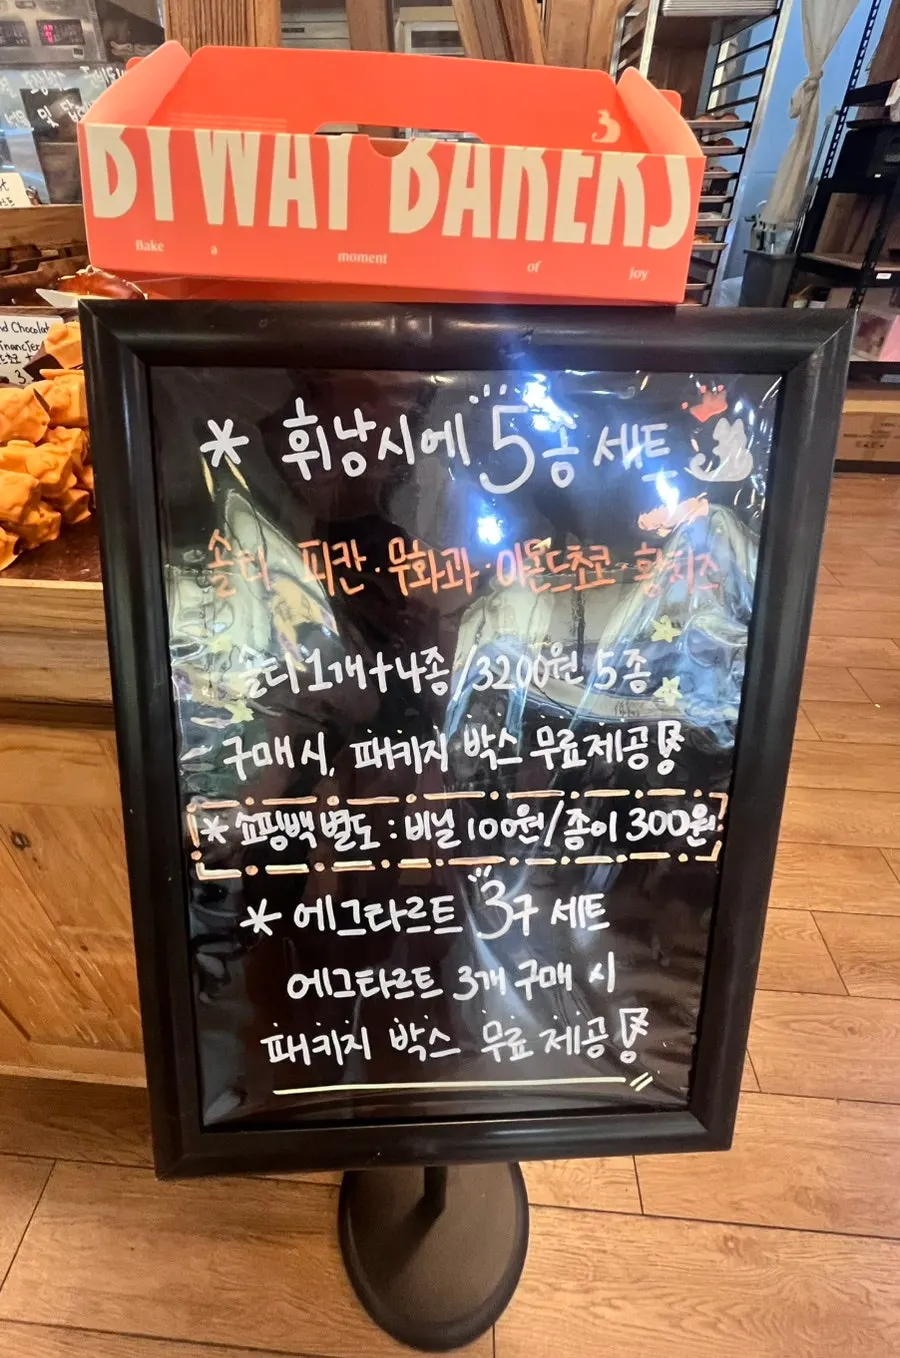 3
BYWAY BAKERS
Bake a moment of joy
nd Chocolat
inancier
3.
* 휘낭시에 5종 세트
솔티 피칸·무화과·아몬드초코·황치즈
솔티 1개+4종/3200원 5종
구매 시, 패키지 박스 무료제공!
* 쇼핑백 별도 : 비닐 100원/종이 300원
* 에그타르트 3구 세트
에그타르트 3개 구매 시
패키지 박스 무료 제공!